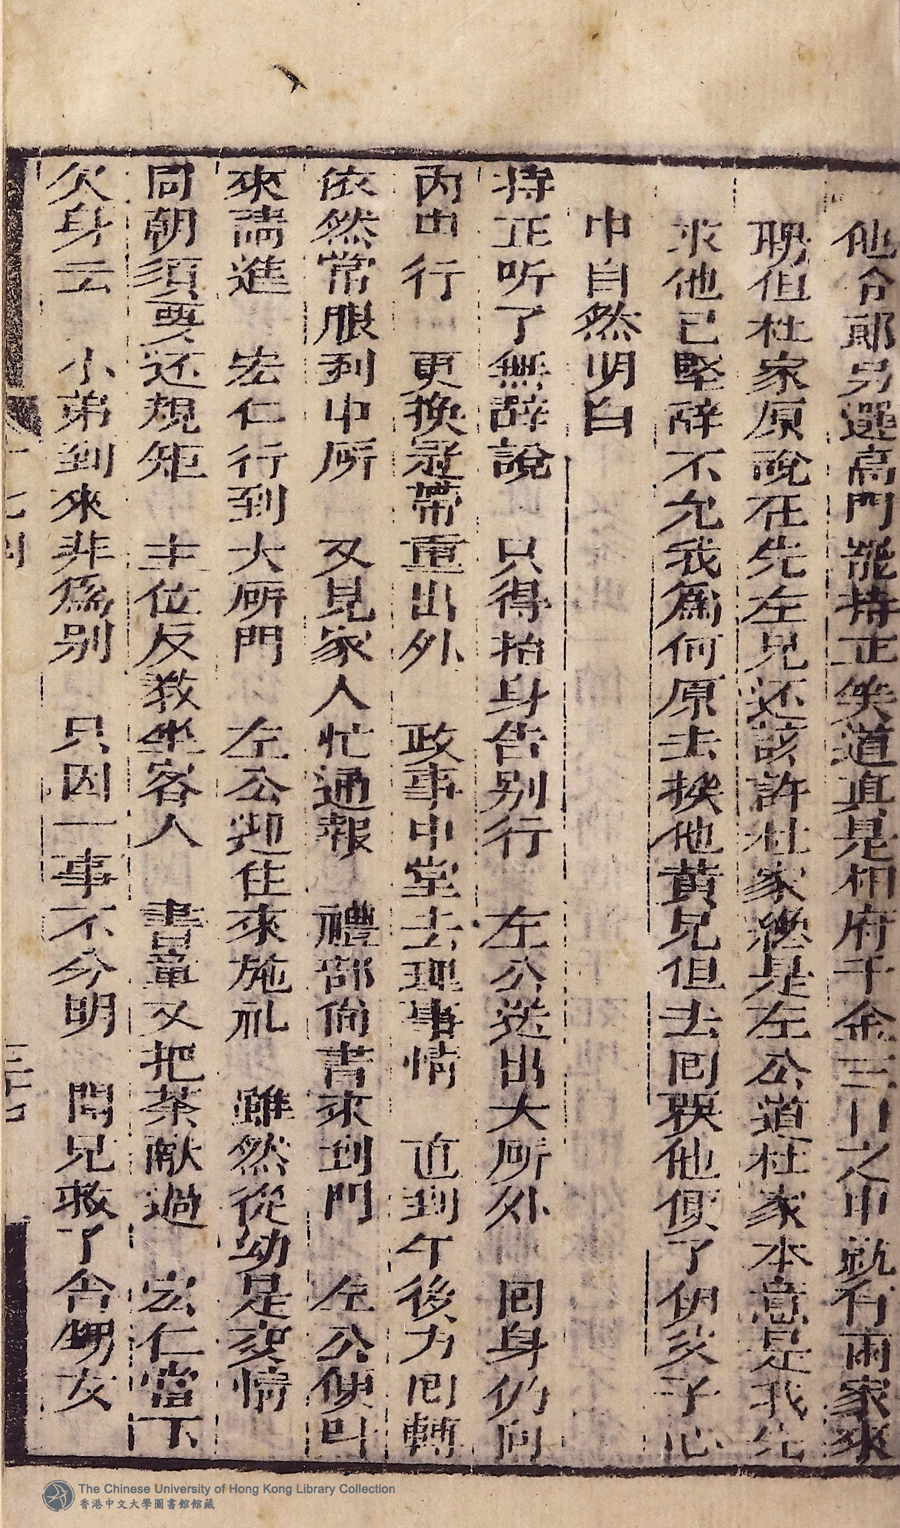 他令郎另選高門罷持正矣道真是相府千金三日之中就有兩家來
聘但杜家原說在先左兄还該許杜家纔是左公道杜家本意是我先
求他已堅辞不允我爲何原去挨他黄兄但去囘覄他便了伊亥子心
中自然明白
持正听了無辞說 只得抬身告别行 左公送出大所外 囘身仍向
内中行 更换冠帶重出外 政事中堂去理事情 直到午後方囘轉
依然常服到中所 又見家人忙通報 禮部尚書來到門 左公便叫
來請進 宏仁行到大所門 左公迎住來施礼 雖然從幼是交情
同朝須要还規矩 主位反教坐客人 書童又把茶献過 宏仁當下
欠身云 小弟到來非爲别 只因一事不分明 問兄救了舎甥女
三十七
The Chinese University of Hong Kong Library Collection
香港中文大學圖書館館藏